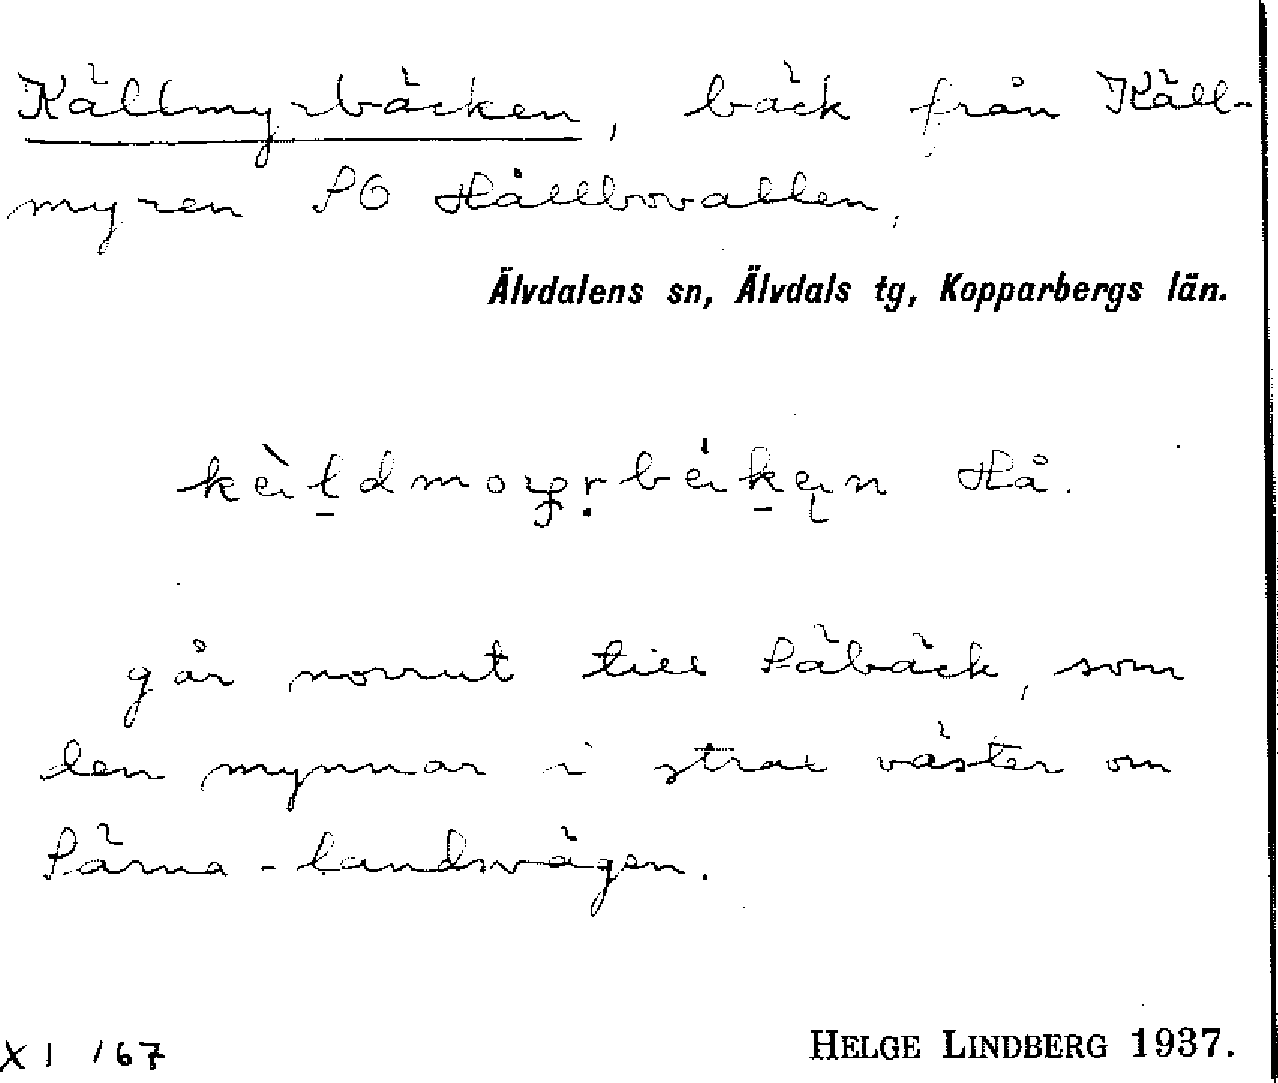 Källmyrbäcken, bäck från Käll-
myren SO Hållbovallen,
Älvdalens sn, Älvdals tg, Kopparbergs län.
Hå.
går norrut till Säbäck, som
den mynnar i strax väster om
Särna-landsvägen.
XI 167
HELGE LINDBERG 1937.